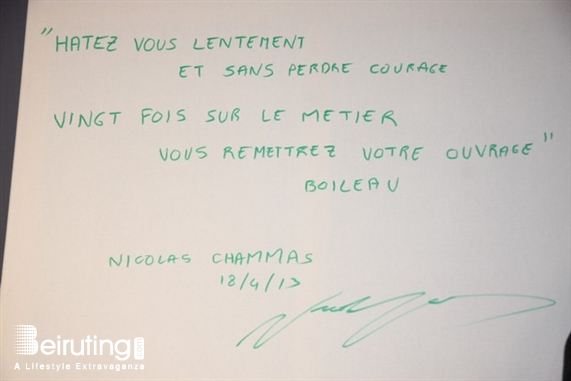 "HATEZ VOUS LENTEMENT
ET SANS PERDRE COURAGE
VINGT FOIS SUR LE METIER
VOUS REMETTREZ VOTRE OUVRAGE"
BOILEAU
NICOLAS CHAMMAS
18/4/13
Beiruting
A Lifestyle Extravaganza